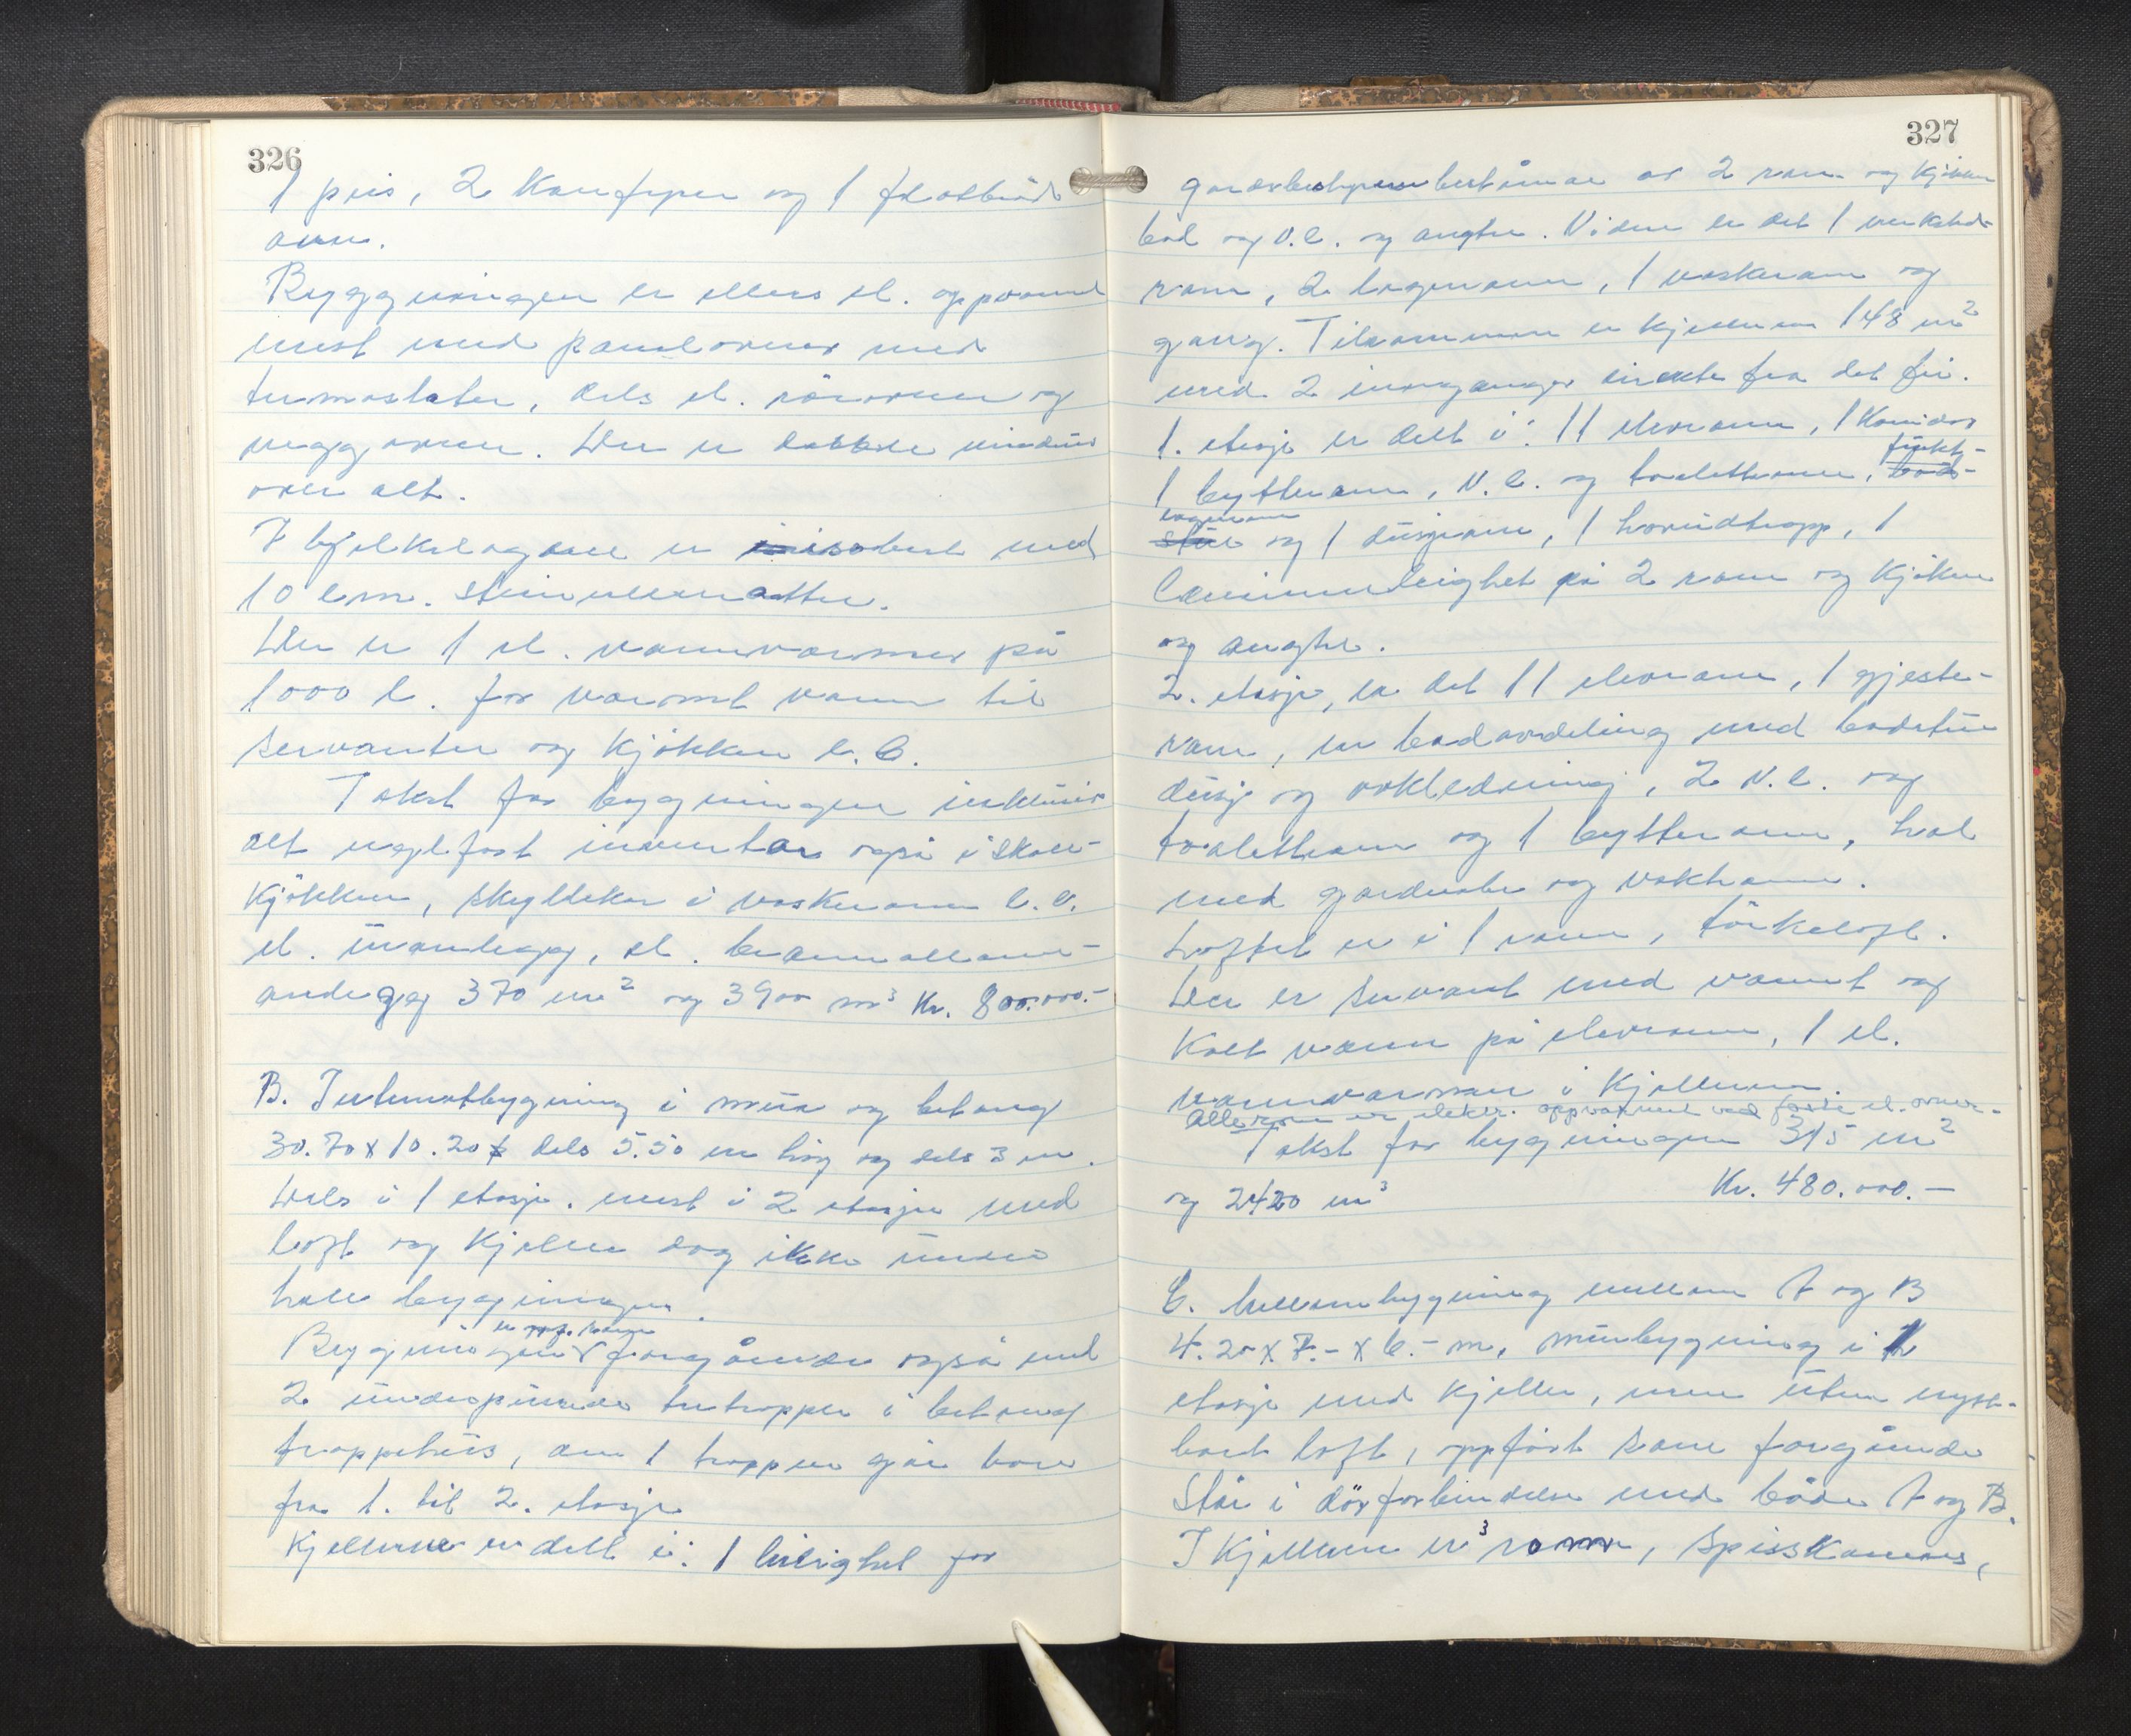 326
1 peis, 2 komfyrer og 1 flatbrød
ovn.
Byggningen er ellers el. oppvarmet
mest med panelovner med
termostater, dels el. rörovner og
veggovner. Der er dobble vinduer
over alt.
I bjelkelagene er isolert med
10 cm. steinullmatter.
Der er 1 el. vannvarmer på
1000 l. for varmt vann til
servanter og kjøkken e. c.
Takst for bygningen inklusiv
alt naglfast inventar også i skole-
kjøkken, skyllekar i vaskerom e. c.
el. anlegg, el. brannalarm-
anlegg 370 m² og 3900 m³ Kr. 800.000.-
B. Internatbygning i mur og betong
30.70 x 10.20 dels 5.50 m høg og dels 3 m.
Dels i 1 etasje. mest i 2 etasjer med
loft og kjeller dog ikke under
hele bygningen.
er oppf. som
Bygningen forgående også med
2 tretrapper i betong
trappehus, den 1 trappen går bare
fra 1. til 2. etasje
Kjelleren er delt i: 1 leilighet for
327
gardsbestyreren bestående av 2 rom og kjøkken
bad og v.c. og angtre. Videre er det 1 verksteds-
rom, 2 lagerrom, 1 vaskerom og
gang. Tilsammen er kjelleren 148 m²
med 2 innganger direkte fra det fri.
1. etasje er delt i: 11 elevrom, 1 korridor
1 bytterom, v.c. og toalettrom,
og 1 dusjrom, 1 hovedtrapp, 1
leilighet på 2 rom og kjøkken
og angtre.
2. etasje, er det 11 elevrom, 1 gjeste-
rom, en badavdeling med badstue
dusj og avkledning, 2 v.c. og
toalettrom og 1 bytterom, hal
med garderobe og vaktrom.
Loftet er i 1 rom, törkeloft.
Der er servant med varmt og
kalt vann på elevrom, 1 el.
vannvarmer i kjelleren.
Alle rom er elektr. oppvarmet ved faste el. ovner.
Takst for bygningen 315 m²
og 2420 m³ Kr. 480.000.-
C. Mellombygning mellom A og B
4.20 x 7.- x 6.- m, murbygning i 1
etasje med kjeller, men uten nytt-
bart loft, oppført som forgående
Står i dörforbindelse med både A og B.
I kjelleren er 3 rom, spisskammers,